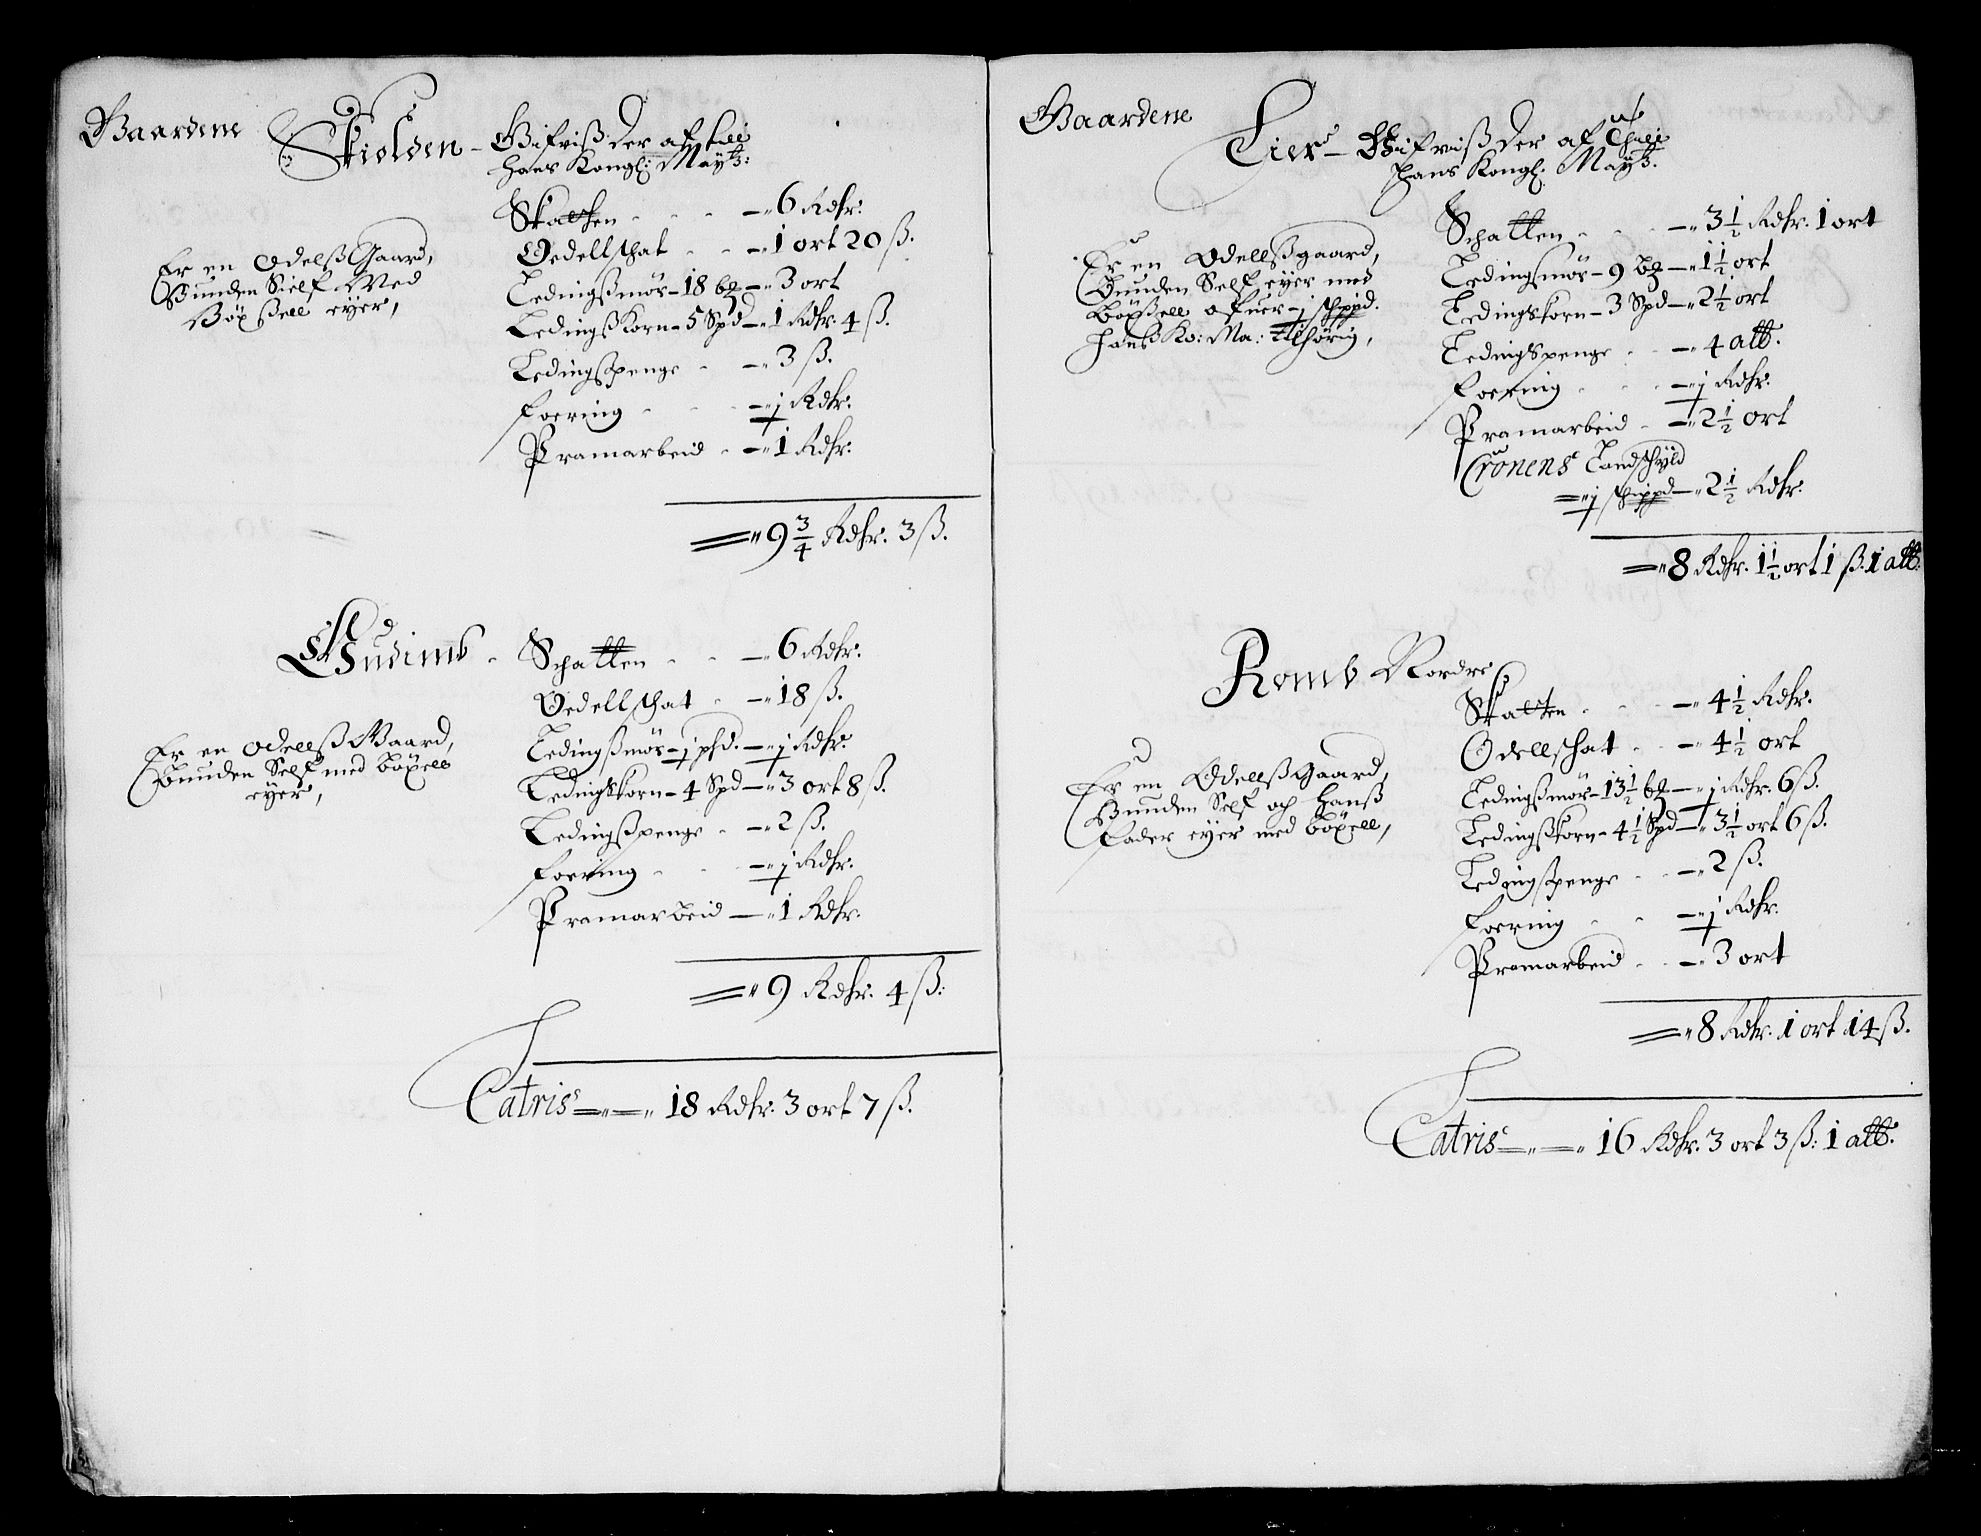 Gaardene
Skiolden - Gifviß der af till
hans Kongl: Maytz:
Skatten - - - 6 Rdlr:
Oedellschat - - - 1 ort 20 ß.
Ledingßmör - 18 bz - 3 ort
Ledingßkorn - 5 Spd - 1 Rdlr: 4 ß.
Ledingßpenge - - 3 ß.
Foering - - - j Rdlr:
Pramarbeid - - 1 Rdlr:
Er en Odelß Gaard,
Bunden Sielf Med
Böxßell eyer,
9 3/4 Rdlr. 3 ß.
Gudimb - Schatten - - - 6 Rdlr:
Oedellschat - - 18 ß.
Ledingßmör - j phd. - j Rdlr:
Ledingskorn - 4 Spd - 3 ort 8 ß.
Ledingßpenge - - 2 ß.
Foering - - - j Rdlr:
Pramarbeid - 1 Rdlr.
Er en Odellß Gaard,
Bunden Self med böxell
eyer,
9 Rdlr. 4 ß:
Latris - - 18 Rdlr. 3 ort 7 ß.
Gaardene
Lier - Gifviß der af Thill
Hans Kongl: Maytz.
Schatten - - - 3 1/2 Rdlr. 1 ort
Ledingsmör - 9 bz - 1 1/2 ort
Ledingskorn - 3 Spd - 2 1/2 ort
Ledingspenge - - 4 alb.
Foering - - - j Rdlr:
Pramarbeid - - 2 1/2 ort
Cronens Landschyld
j schippd - 2 1/2 Rdlr:
Er en Odellßgaard,
Bunden Self eyer med
böxßell ofuer - j schppd.
Hans Ko: Ma: tilhörig,
8 Rdlr. 1 1/2 ort 1 ß. 1 alb:
Romb Nordre
Skatten - - - 4 1/2 Rdlr.
Odellschat - - 4 1/2 ort
Ledingßmör - 13 1/2 bz - j Rdlr. 6 ß.
Ledingßkorn - 4 1/2 Spd - 3 1/2 ort 6 ß.
Ledingßpenge - - 2 ß.
Foering - - - j Rdlr.
Pramarbeid - - 3 ort
Er en Odellß Gaard,
Bunden Self och Hanß
Fader eyer med böxell,
8 Rdlr. 1 ort 14 ß.
Latris - - 16 Rdlr. 3 ort 3 ß: 1 alb.